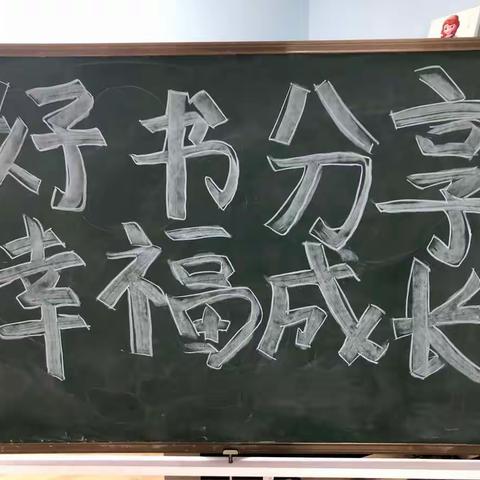 好书分享
幸福成长